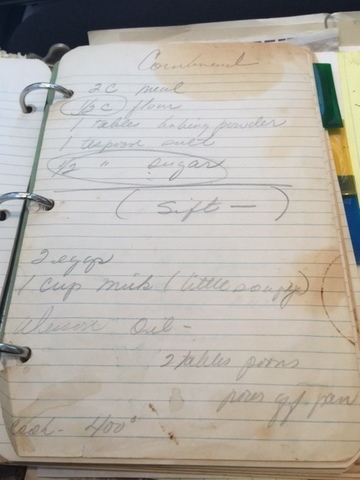 Cornbread
2 C meal
1/2 C flour
1 tables baking powder
1 teaspoon salt
1/2 " sugar
( Sift — )
2 eggs
1 cup milk ( little soupy)
Wesson Oil -
2 tables poons
pour off pan
Cook - 400°